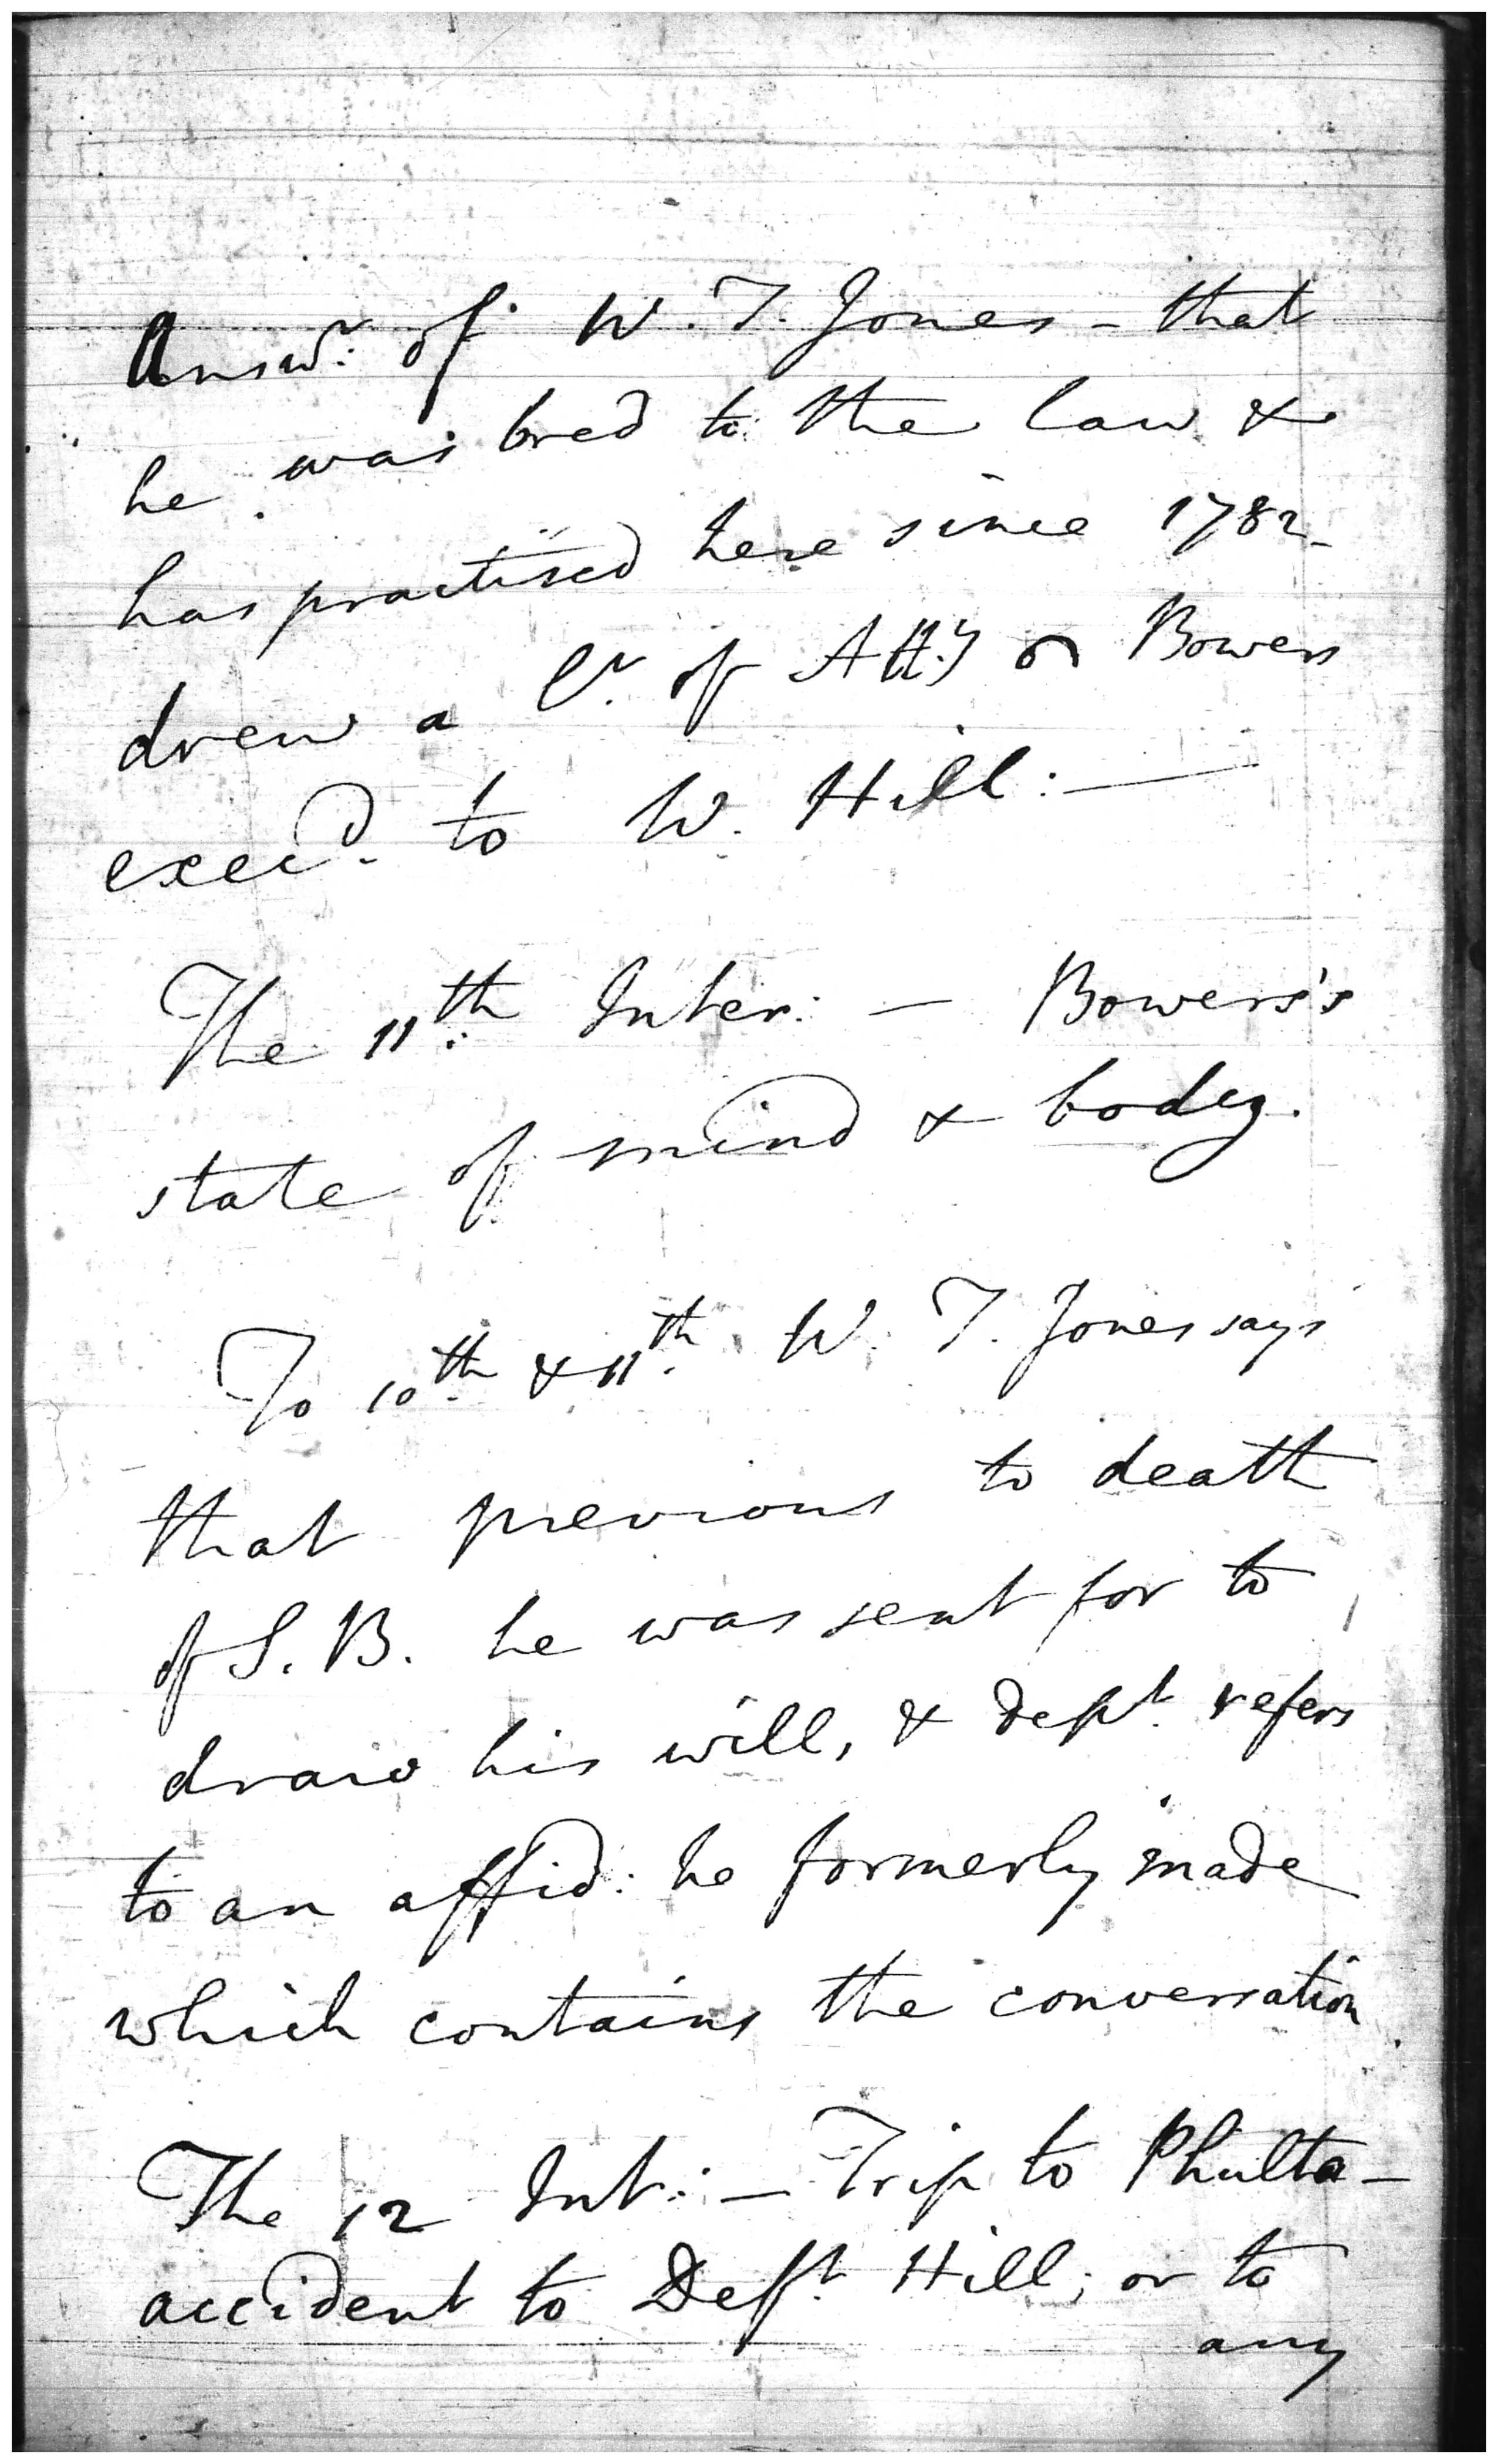 Answr: of W. T. Jones - that
he was bred to the law &
has practised here since 1782 -
drew a Pr. of Atty & Bowers
execd. to W. Hill: —
The 11th. Inter: — Bowers's
state of mind & body.
To 10th & 11th. W. T. Jones says
that previous to death
of S. B. he was sent for to
draw his will, & dept. refers
to an affid: he formerly made
which contains the conversation
The 12 Int: — Trip to Phulta -
accident to Deft. Hill; or to
any